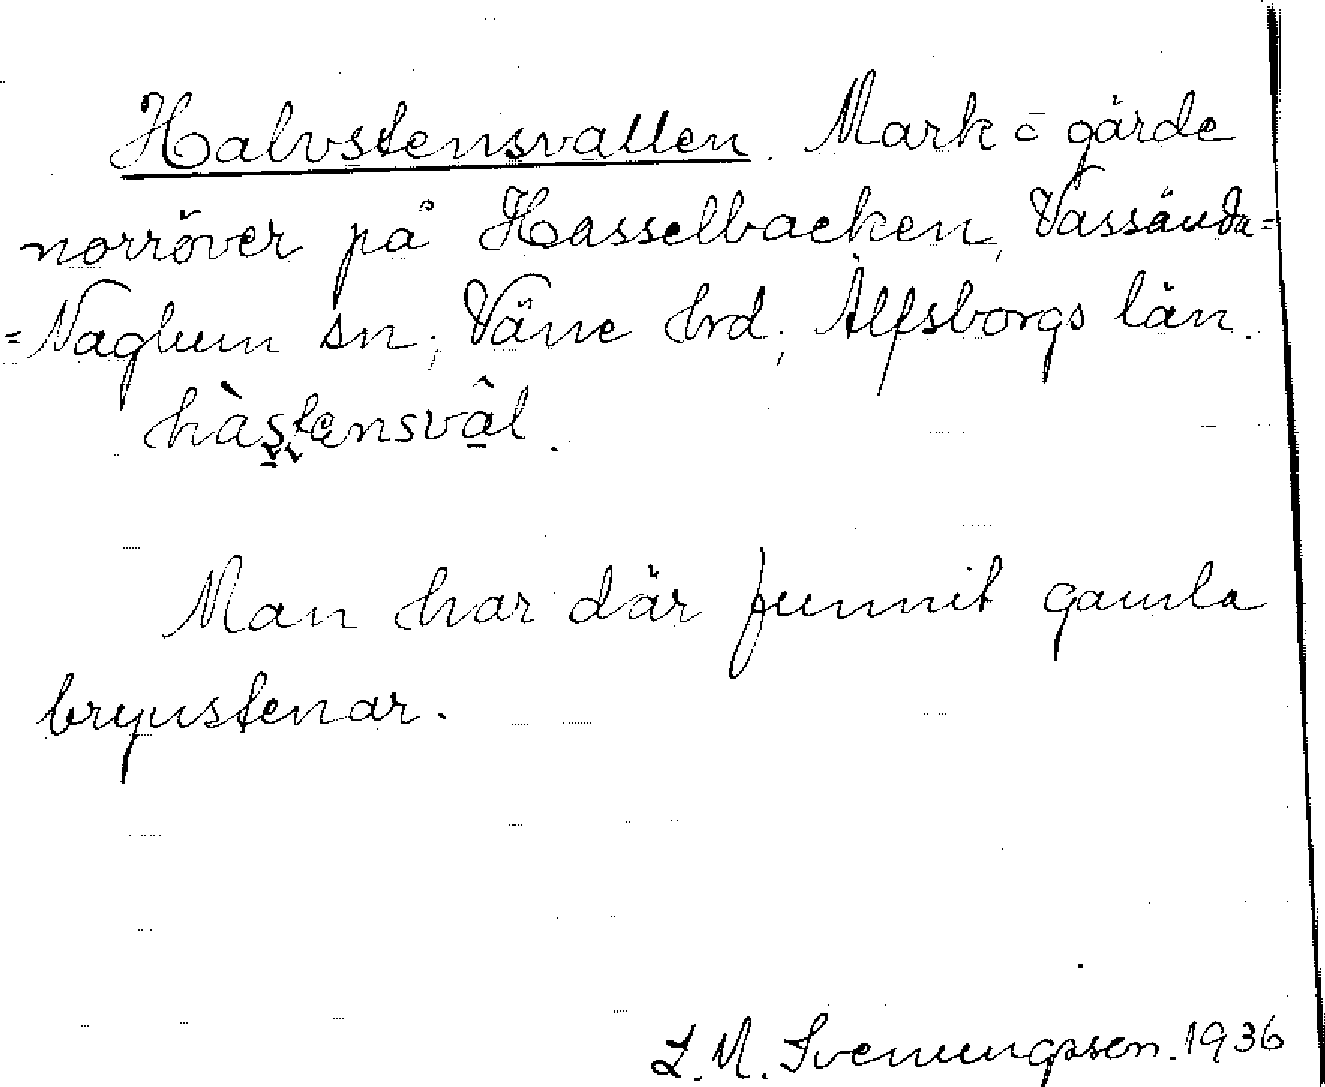 Halvstensvallen. Mark o gärde
norröver på Hasselbacken, Vassända=
=Naglum sn, Väne hrd, Älfsborgs län.
hàstensvâl.
Man har där funnit gamla
brynstenar.
L. M. Svenungsson. 1936